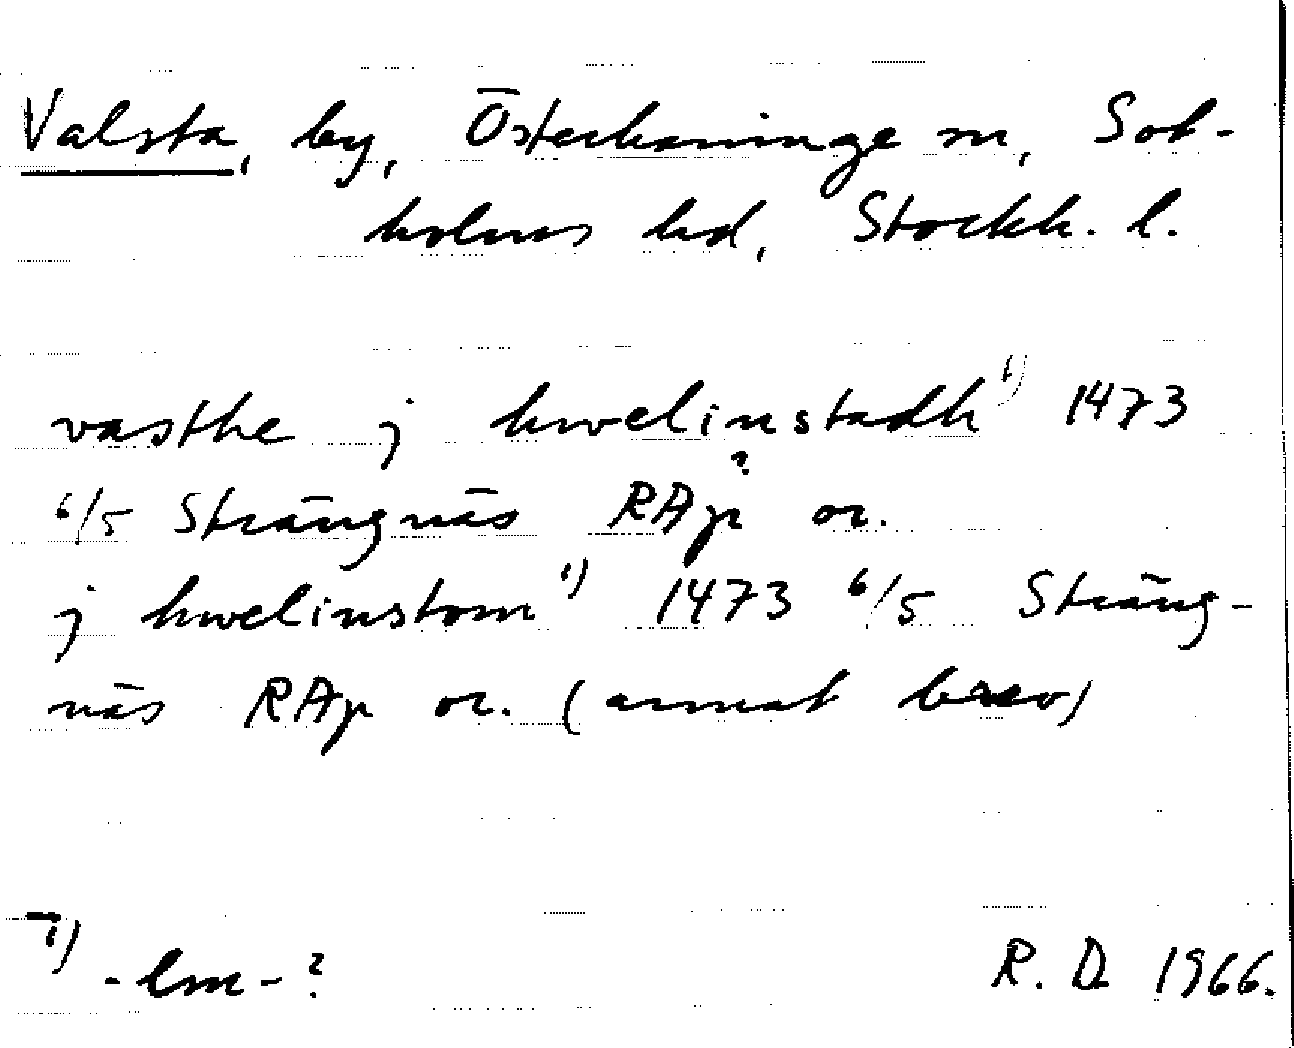 Valsta, by, Österhaninge sn, Sot-
holms hd, Stockh. l.
vasthe j hwelinstadh¹⁾ 1473
6/5 Strängnäs RAp or.
?
j hwelinstom¹⁾ 1473 6/5 Sträng-
näs RAp or. (annat brev)
¹⁾ -lm-?
R. D. 1966.